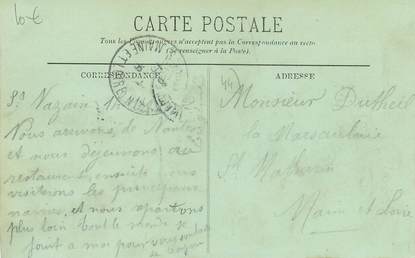 10€
CARTE POSTALE
Tous les Pays étrangers n'acceptent pas la Correspondance au recto
(Se renseigner à la Poste).
CORRESPONDANCE
ADRESSE
MAINE ET LOIRE
44
St Nazaire
Nous arrivons de Nantes
et nous déjeunons au
restaurent, ensuite nous
visiterons les principaux
navires, et nous
plus loin tout le monde se
joint a moi pour vous
Monsieur Dutheil
la
St Mathurin
Main et Loire